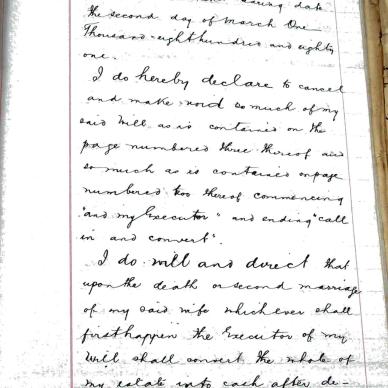 bearing date
the second day of March One
Thousand eight hundred and eighty
one.
I do hereby declare to cancel
and make void so much of my
said Will as is contained on the
page numbered three thereof and
so much as is contained on page
numbered too thereof commencing
"and my Executor" and ending "call
in and convert".
I do will and direct that
upon the death or second marriage
of my said wife whichever shall
first happen the Executor of my
Will shall convert the whole of
my estate into cash after de-